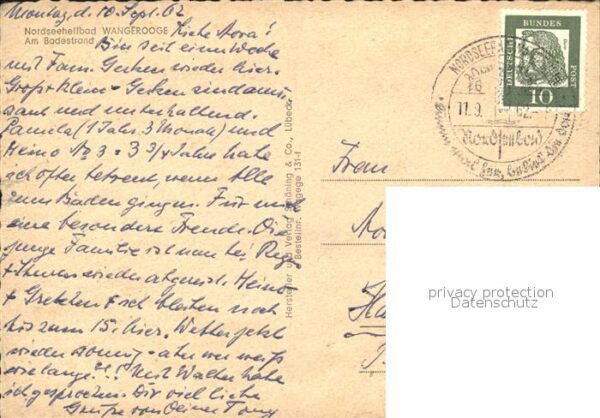 Montag, d. 10. Sept. 62
Nordseeheilbad WANGEROOGE
Am Badestrand
Liebe Nora!
Bin seit einer Woche
mit Fam. Gerken wieder hier.
Groß + Klein - Gerken sind amü-
sant und unterhaltend.
Pamela (1 Jahr 3 Monate) und
Heino 3 3/4 Jahre habe
ich öfter betreut, wenn Alle
zum Baden gingen. Für mich
eine besondere Freude. Die
junge Familie ist nun bei Regen
+ Sturm wieder abgereist. Heino
+ Gretchen bleiben noch
bis zum 15. hier. Wetter jetzt
wieder sonnig - aber wer weiß
wie lange?!! Mit Walter habe
ich gesprochen. Dir viel liebe
Grüße von Deiner Tony
Hersteller und Verlag Schöning & Co., Lübeck
Bestellnr. Wegege 131-f
DEUTSCHE
BUNDES
POST
10
NORDSEEHEILBAD
11.9.
62
Nordseebad
Frau
privacy protection
Datenschutz